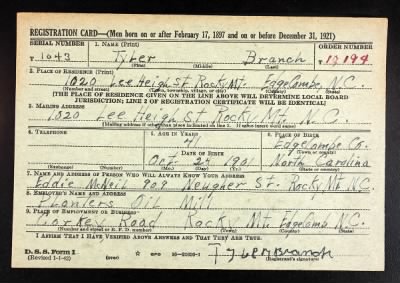 REGISTRATION CARD—(Men born on or after February 17, 1897 and on or before December 31, 1921)
SERIAL NUMBER 1. NAME (Print) ORDER NUMBER
T 1043 Tyler Branch
(First) (Middle) (Last)
2. PLACE OF RESIDENCE (Print)
1020 Lee Heigh St. Rocky Mt. Edgecombe, N.C.
(Number and street) (Town, township, village, or city) (County) (State)
[THE PLACE OF RESIDENCE GIVEN ON THE LINE ABOVE WILL DETERMINE LOCAL BOARD
JURISDICTION; LINE 2 OF REGISTRATION CERTIFICATE WILL BE IDENTICAL]
3. MAILING ADDRESS
1020 Lee Heigh St Rocky Mt. N.C.
[Mailing address if other than place indicated on line 2. If same insert word same]
4. TELEPHONE 5. AGE IN YEARS 6. PLACE OF BIRTH
41 Edgecombe Co.
DATE OF BIRTH (Town or county)
Oct. 24 1901 North Carolina
(Exchange) (Number) (Mo.) (Day) (Yr.) (State or country)
7. NAME AND ADDRESS OF PERSON WHO WILL ALWAYS KNOW YOUR ADDRESS
McNeil 909 St. Rocky Mt. N.C.
8. EMPLOYER'S NAME AND ADDRESS
Planters Oil Mill
9. PLACE OF EMPLOYMENT OR BUSINESS
Cokey Road Rocky Mt. Edgecomb N.C.
(Number and street or R. F. D. number) (Town) (County) (State)
I AFFIRM THAT I HAVE VERIFIED ABOVE ANSWERS AND THAT THEY ARE TRUE.
D. S. S. Form 1
(Revised 1-1-42) (over) GPO Tyler Branch
(Registrant's signature)